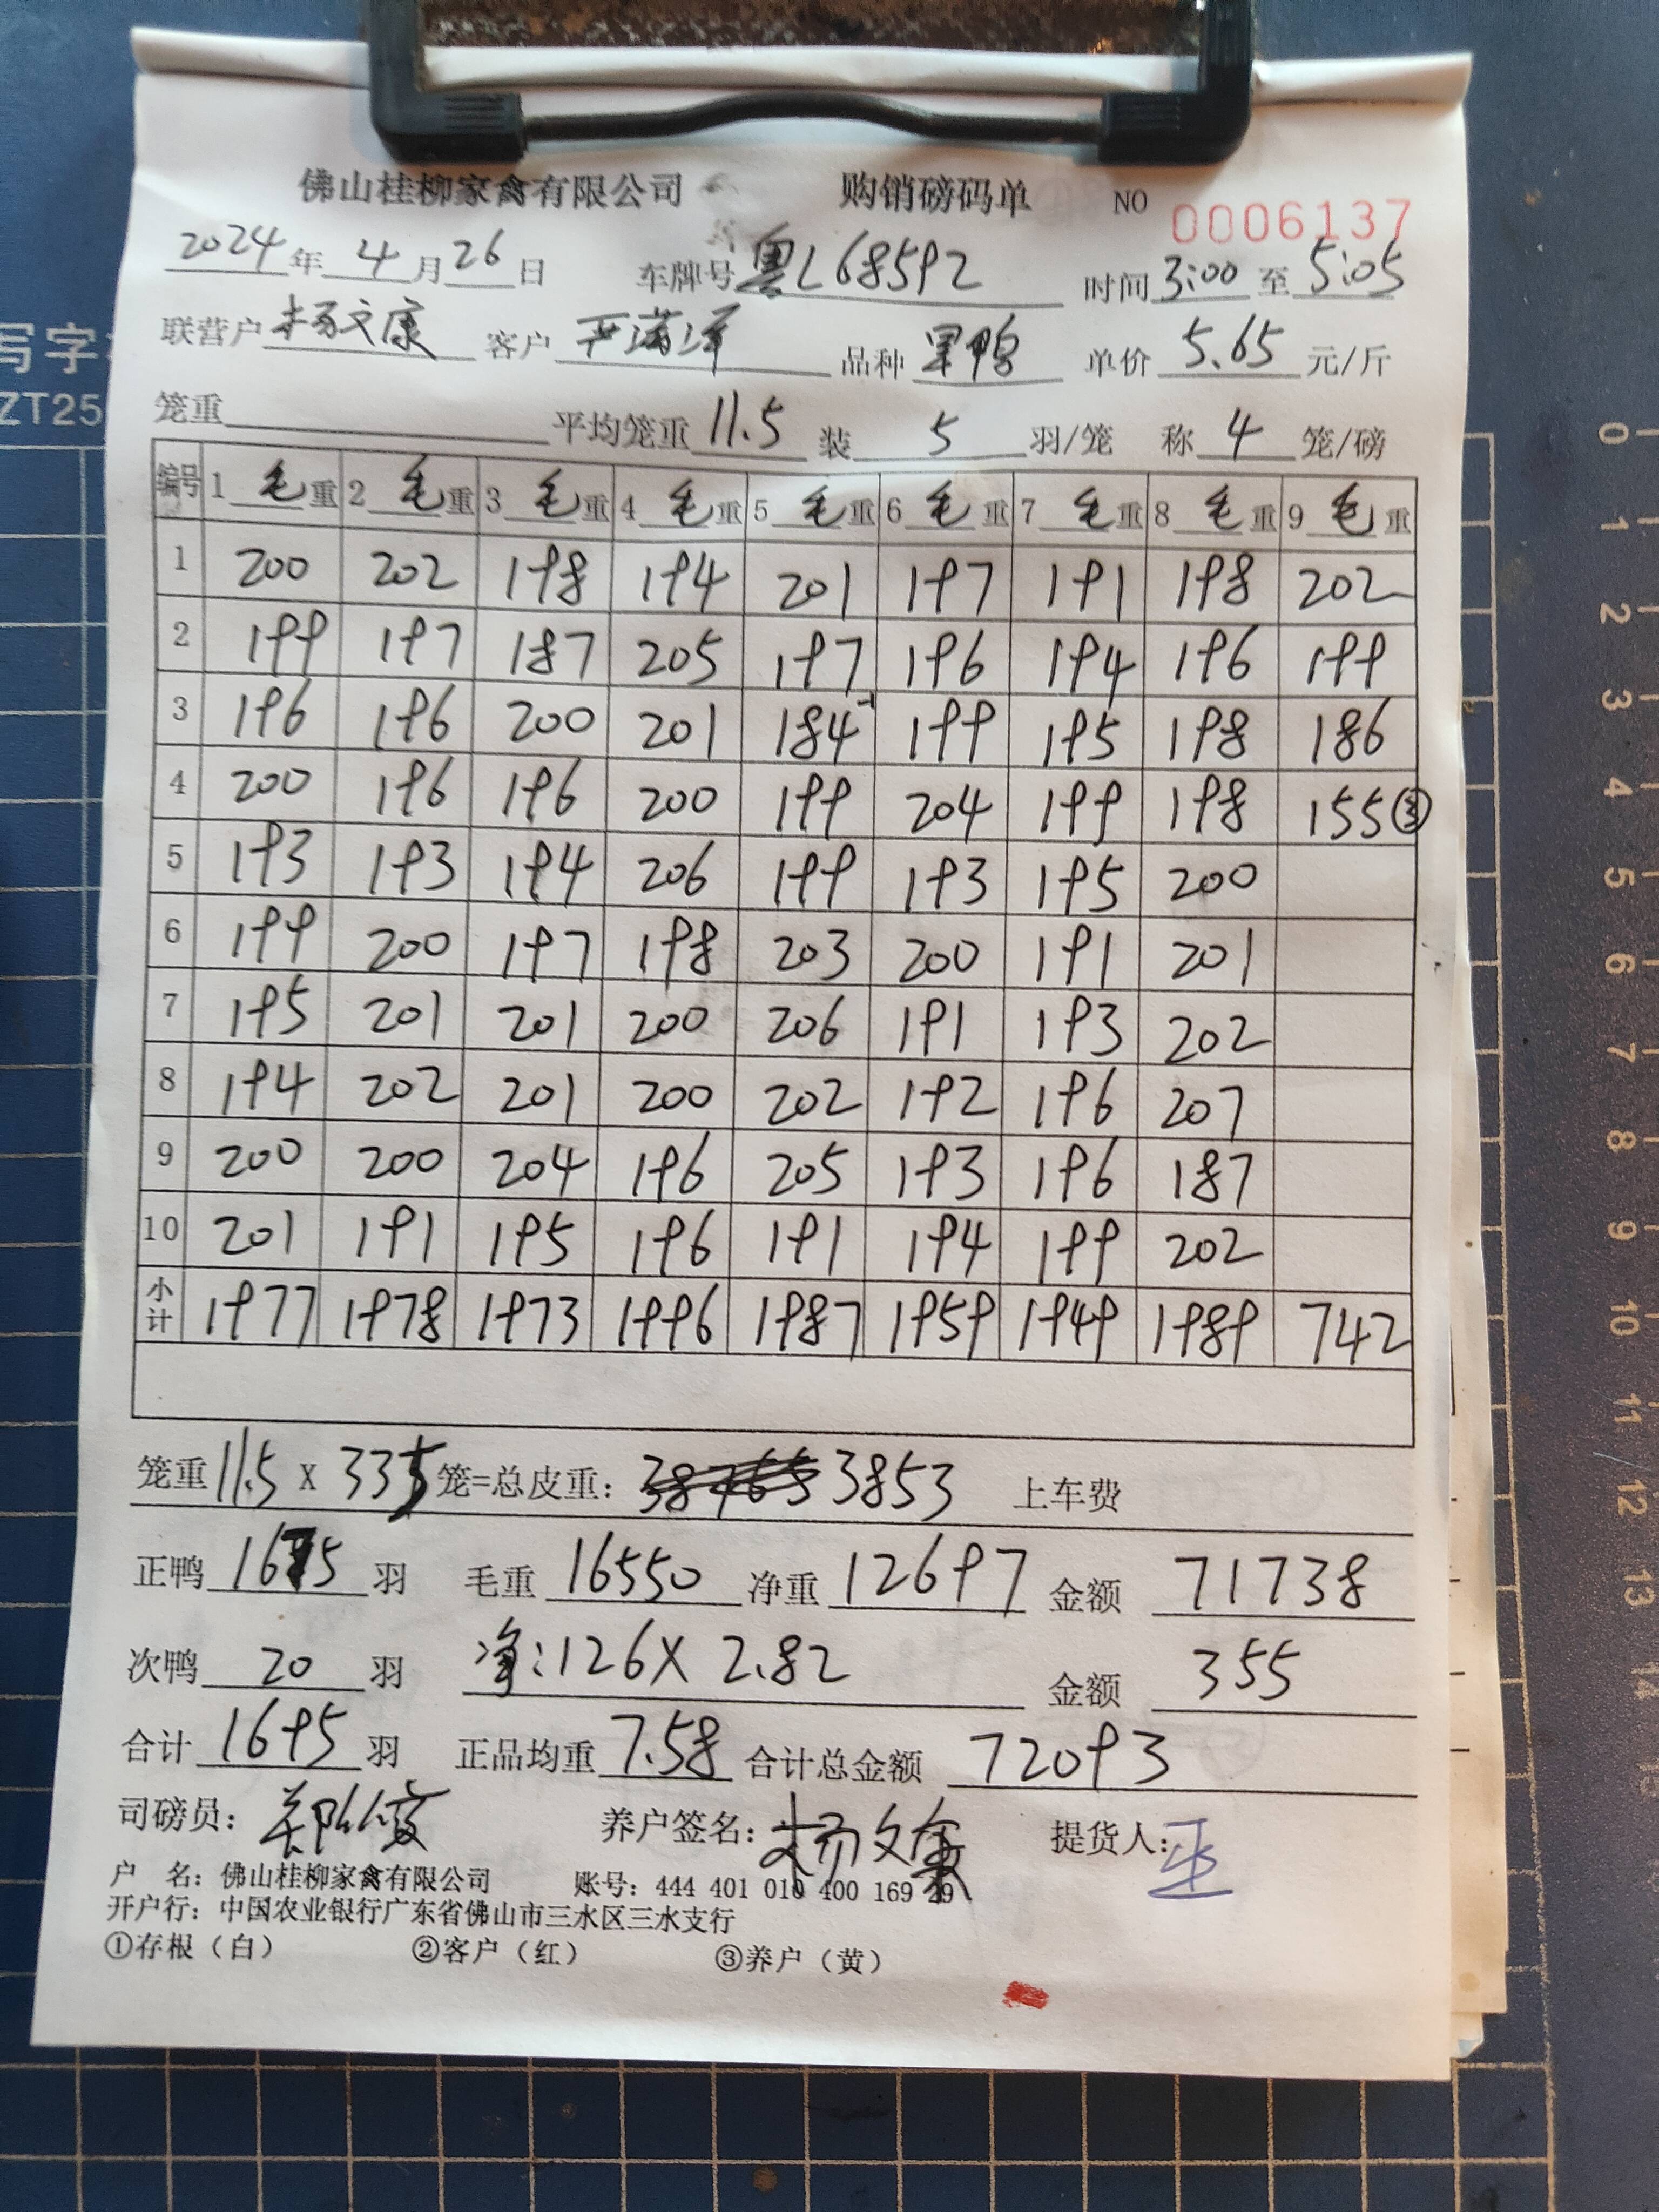 佛山桂柳家禽有限公司 购销磅码单 NO 0006137
2024年4月26日 车牌号粤L68592 时间3:00至5:05
联营户杨文康 客户严满泽 品种黑鸭 单价5.65元/斤
笼重 平均笼重11.5 装5羽/笼 称4笼/磅
编号 1毛重 2毛重 3毛重 4毛重 5毛重 6毛重 7毛重 8毛重 9毛重
1 200 202 198 194 201 197 191 198 202
2 199 197 187 205 197 196 194 196 199
3 196 196 200 201 184 199 195 198 186
4 200 196 196 200 199 204 199 198 155③
5 193 193 194 206 199 193 195 200
6 199 200 197 198 203 200 191 201
7 195 201 201 200 206 191 193 202
8 194 202 201 200 202 192 196 207
9 200 200 204 196 205 193 196 187
10 201 191 195 196 191 194 199 202
小计 1977 1978 1973 1996 1987 1959 1949 1989 742
笼重11.5X335笼=总皮重：3853 上车费
正鸭1675羽 毛重16550 净重12697 金额71738
次鸭20羽 净:126X2.82 金额355
合计1695羽 正品均重7.58 合计总金额72093
司磅员： 养户签名：杨文康 提货人：
户 名：佛山桂柳家禽有限公司 账号：444 401 010 400 169 29
开户行：中国农业银行广东省佛山市三水区三水支行
①存根（白） ②客户（红） ③养户（黄）
写字
ZT25
0 1 2 3 4 5 6 7 8 9 10 11 12 13 14